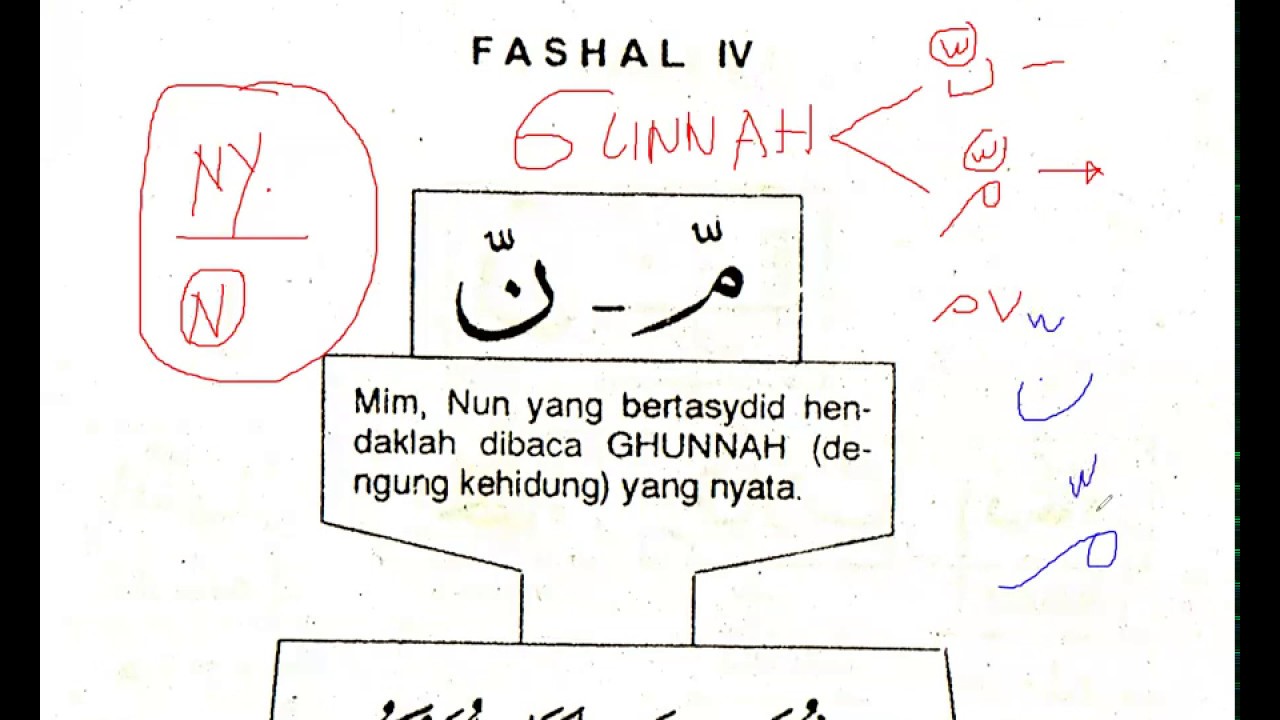 FASHAL IV
GUNNAH
NY.
N
مّ - نّ
Mim, Nun yang bertasydid hen-
daklah dibaca GHUNNAH (de-
ngung kehidung) yang nyata.
ن
م